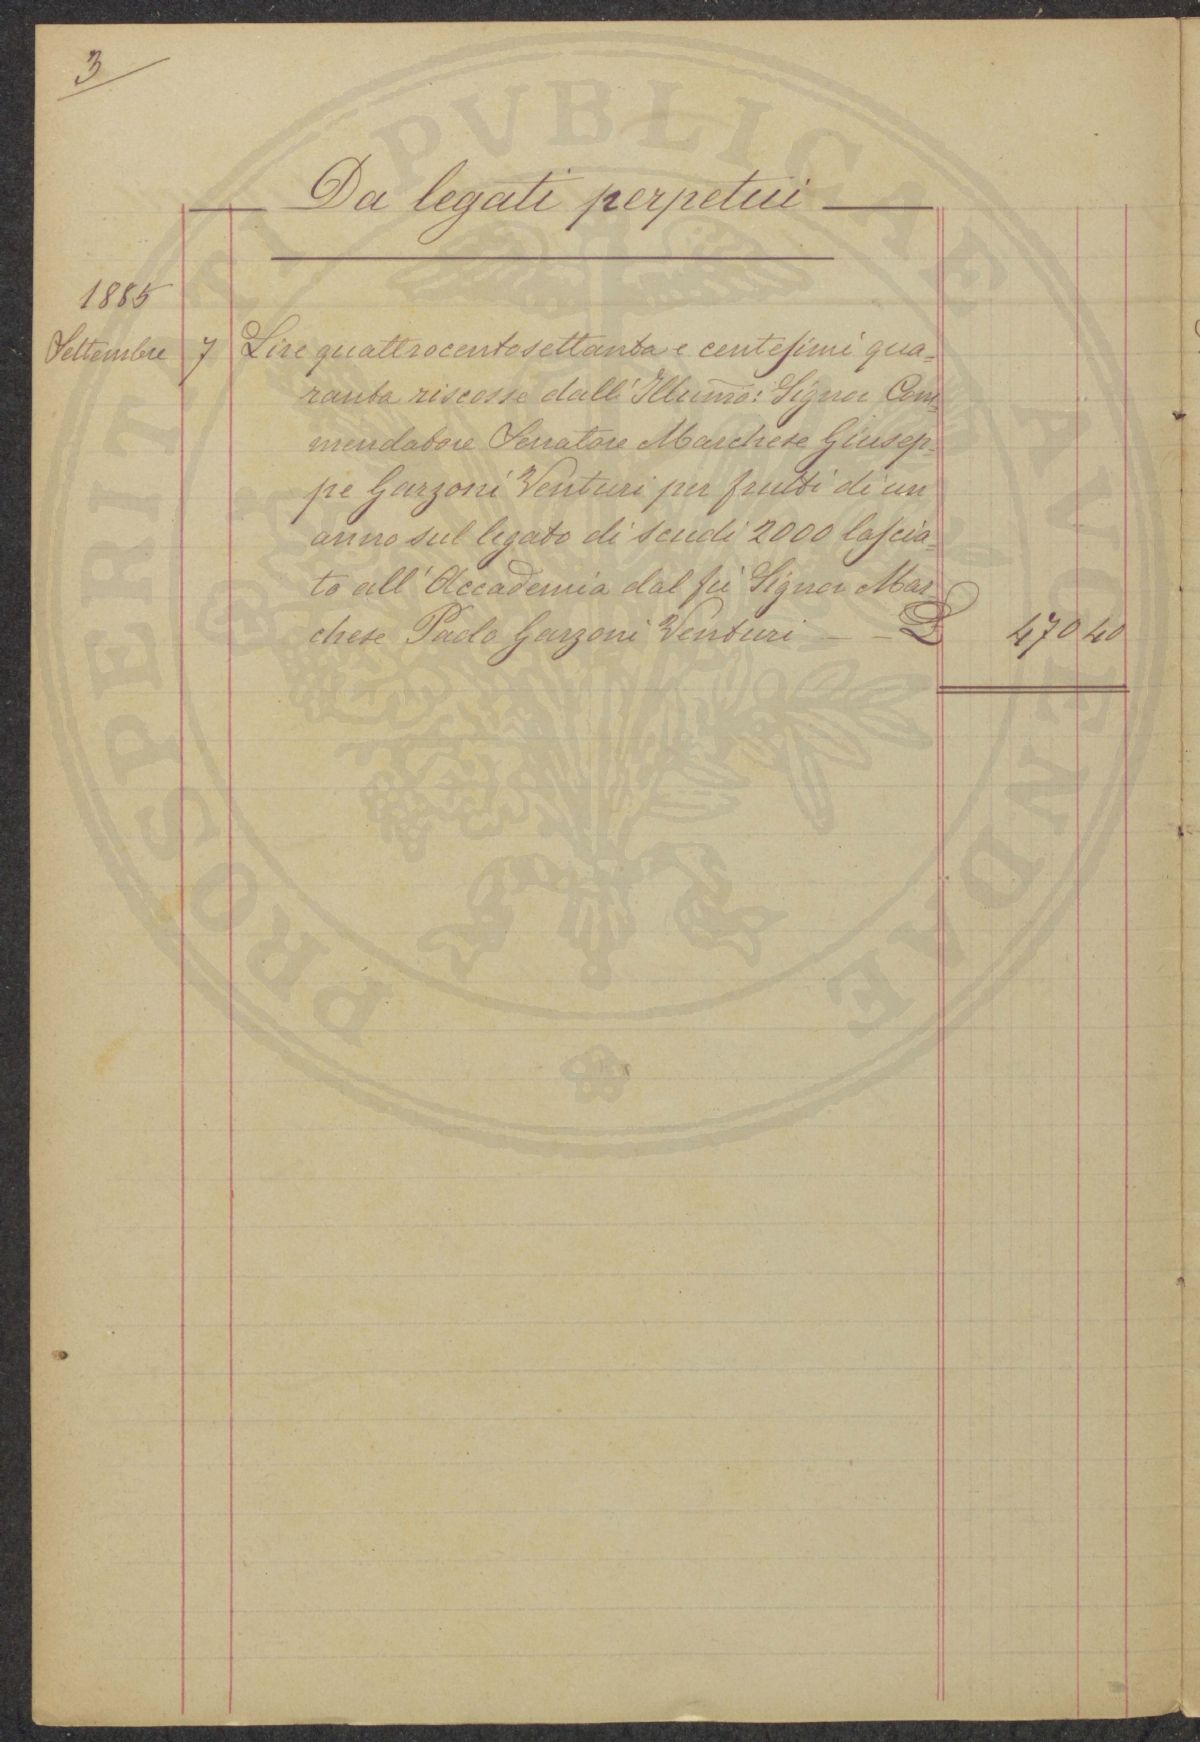 3
Da legati perpetui
1885
Settembre 7 Lire quattrocentosettanta e centesimi qua=
ranta riscosse dall'Illumo: Signor Com=
mendatore Senatore Marchese Giusep=
pe Garzoni Venturi per frutti di un
anno sul legato di scudi 2000 lascia=
to all'Accademia dal fu Signor Mar=
chese Paolo Garzoni Venturi — — L 470 40
PROSPERITATI PVBLICAE AVGENDAE